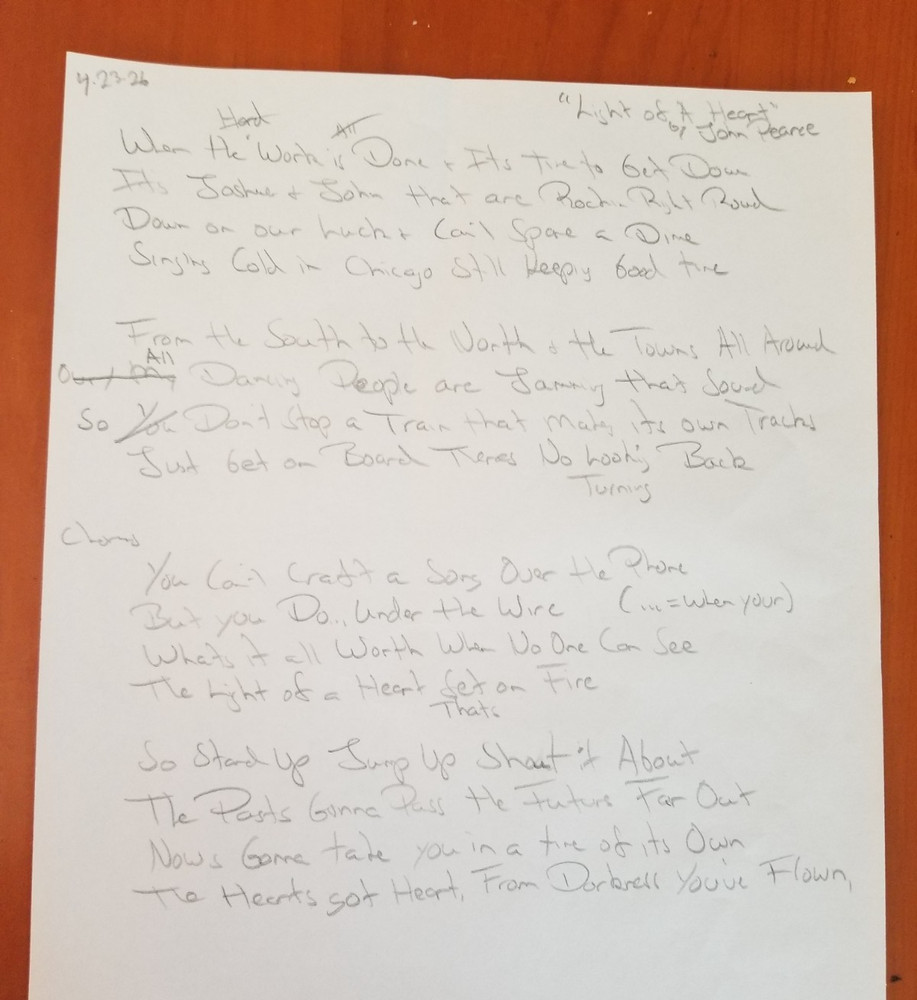 4-23-26
"Light of A Heart"
by John Pearce
Hard All
When the Work is Done + Its Time to Get Down
Its Joshua + John that are Rockin Right Round
Down on our Luck + Can't Spare a Dime
Singing Cold in Chicago Still Keeping Good time
From the South to the North & the Towns All Around
All
Dancing People are Jammin that Sound
So You Don't Stop a Train that Makes its own Tracks
Just Get on Board Theres No Looking Back
Turning
Chorus
You Can't Craft a Song Over the Phone
But you Do... Under the Wire (... = when your)
Whats it all Worth When No One Can See
The Light of a Heart Set on Fire
Thats
So Stand Up Jump Up Shout it About
The Pasts Gonna Pass the Future Far Out
Nows Gonna take you in a time of its Own
The Hearts got Heart, From Darkness You've Flown,